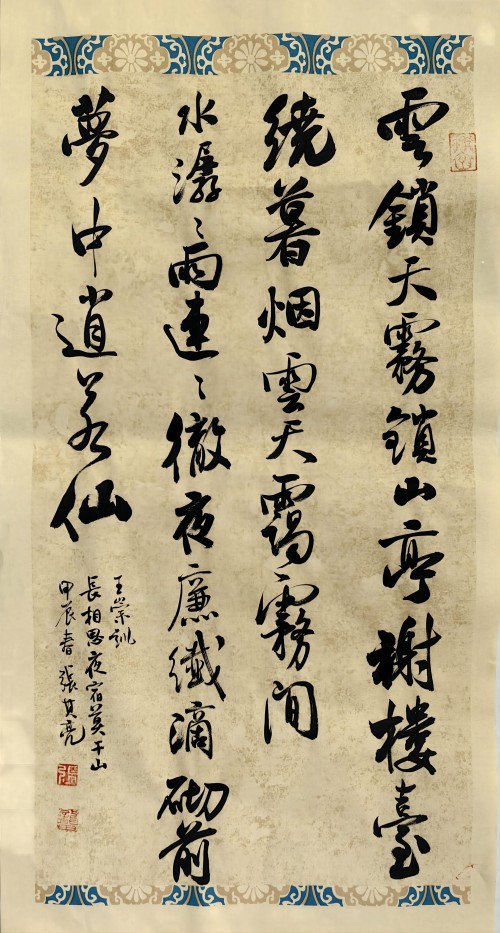 雲鎖天霧鎖山亭榭樓臺
繞暮烟雲天靄霧间
水潺〻雨連〻徹夜廉纖滴砌前
夢中逍若仙
王崇訓
長相思夜宿莫干山
甲辰春張其亮